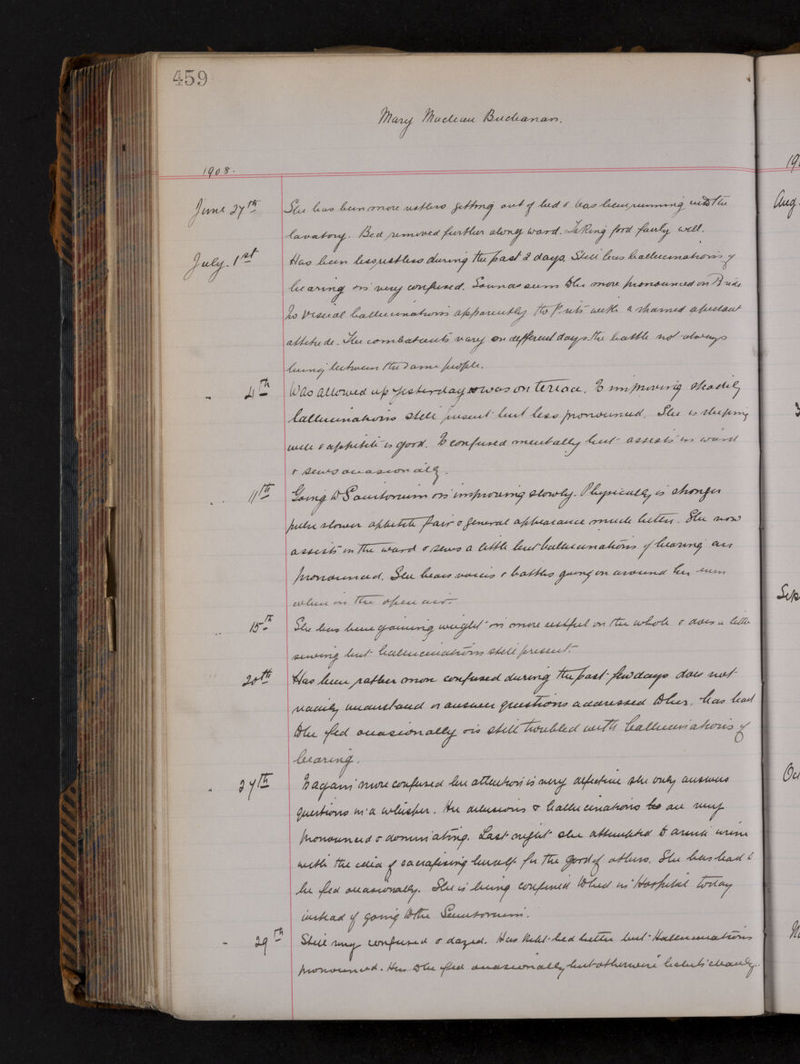 459
Mary Maclean Buchanan.
1908.
June 27th She has been more restless getting out of bed & has been running into the
lavatory. Bed removed further along ward. Taking food fairly well.
July. 1st Has been less restless during the past 2 days. Still has hallucinations of
hearing & is very confused. more pronounced on
visual hallucinations apparently with a
attitude. The combatants vary on different days the battle not always
being between the same people.
" 4th Was allowed up yesterday & was on terrace. Is improving steadily
hallucinations still present but less pronounced. She is sleeping
well & appetite is good. Is confused mentally but assists in ward
& sews occasionally.
" 11th Going to Sanitorium & is improving slowly. Physically is stronger
pulse slower appetite fair & general appearance much better. She now
assists in the ward & sews a little but hallucinations of hearing are
pronounced. She hears voices & battles going on around her even
when in the open air.
" 15th She has been gaining weight & is more restful on the whole & does a little
sewing but hallucinations still present.
20th Has been rather more confused during the past few days does not
readily understand or answer questions addressed to her. Has had
to be fed occasionally & is still troubled with hallucinations of
hearing.
" 27th Is again more confused her attention is very defective she only answers
questions in a whisper. Her delusions & hallucinations are very
pronounced & dominating. Last night she attempted to drink urine
with the idea of sacrafising herself for the good of others. She has had to
be fed occasionally. She is being confined to bed in Hospital today
instead of going to the Sanitorium.
" 29th Still very confused & dazed. Has kept bed better but Hallucinations
pronounced. Has to be fed occasionally but otherwise habits cleanly.
19
Aug
Sep
Oc
N